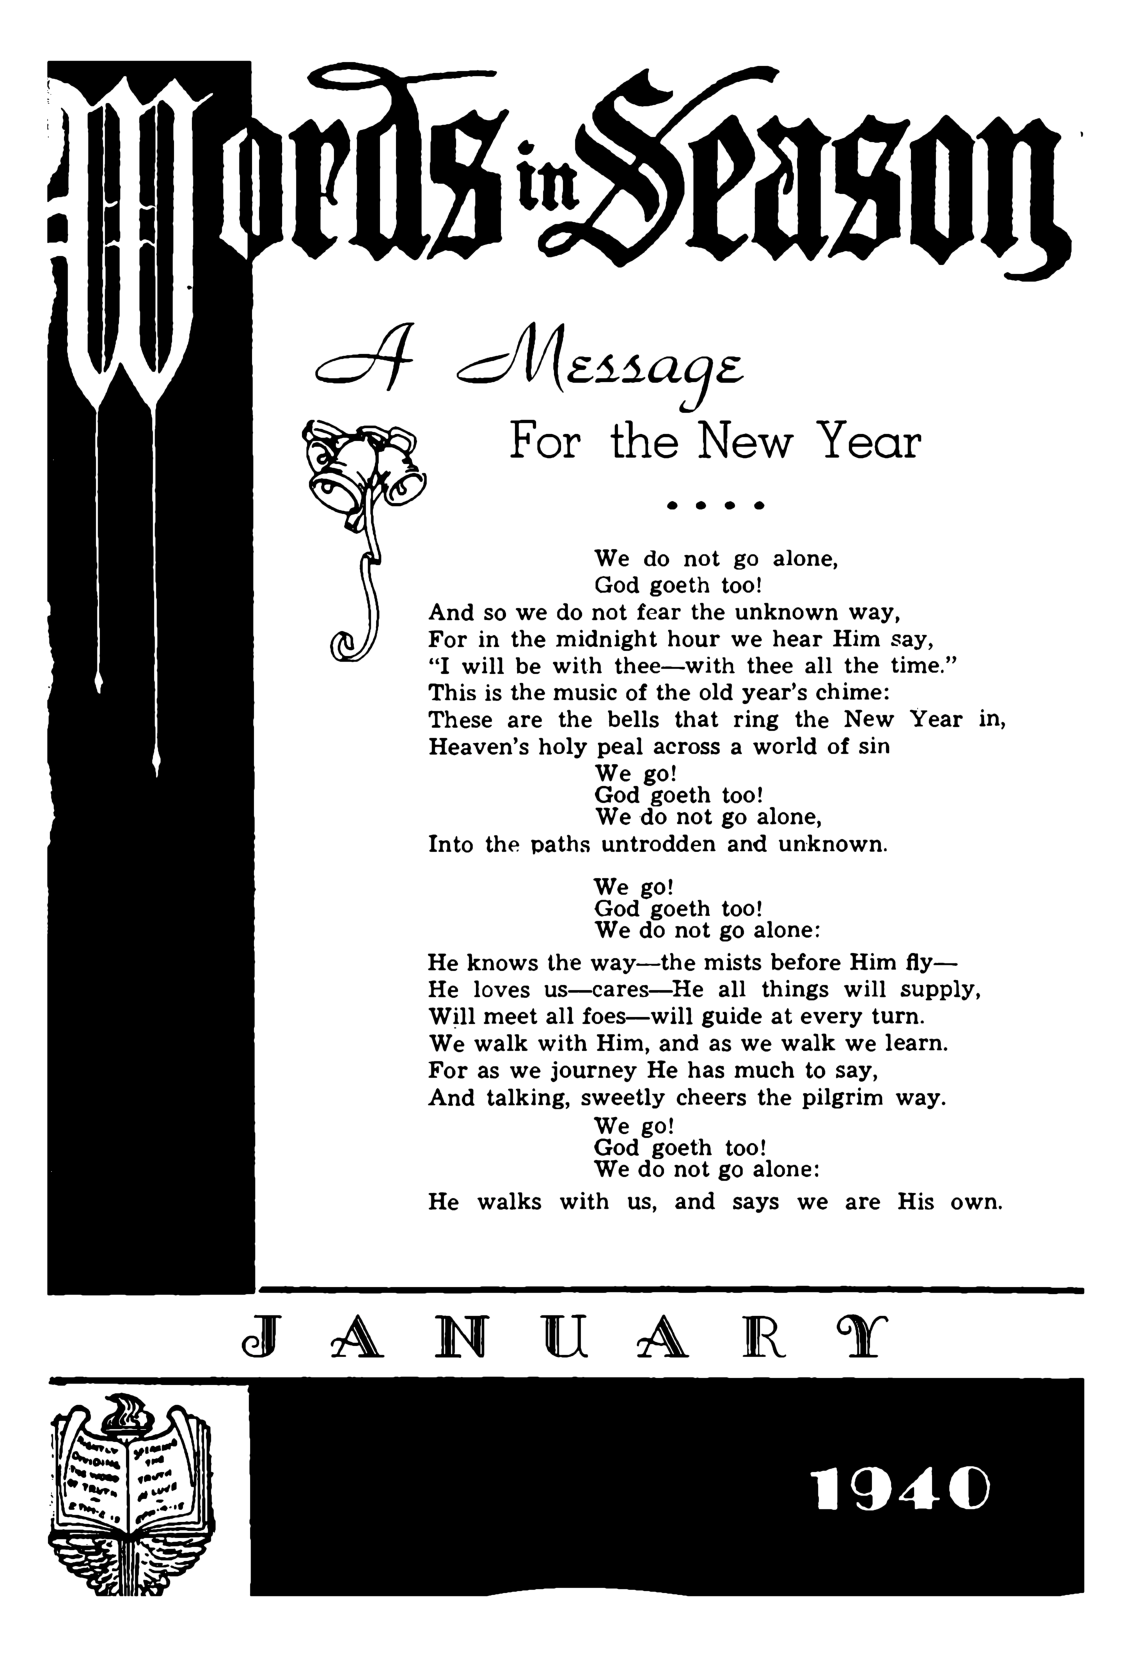 Words in Season
A Message
For the New Year
We do not go alone,
God goeth too!
And so we do not fear the unknown way,
For in the midnight hour we hear Him say,
“I will be with thee—with thee all the time.”
This is the music of the old year's chime:
These are the bells that ring the New Year in,
Heaven's holy peal across a world of sin
We go!
God goeth too!
We do not go alone,
Into the paths untrodden and unknown.
We go!
God goeth too!
We do not go alone:
He knows the way—the mists before Him fly—
He loves us—cares—He all things will supply,
Will meet all foes—will guide at every turn.
We walk with Him, and as we walk we learn.
For as we journey He has much to say,
And talking, sweetly cheers the pilgrim way.
We go!
God goeth too!
We do not go alone:
He walks with us, and says we are His own.
JANUARY
RIGHTLY
DIVIDING
THE WORD
OF TRUTH
2 TIM-2-15
SPEAKING
THE
TRUTH
IN LOVE
EPH-4-15
1940